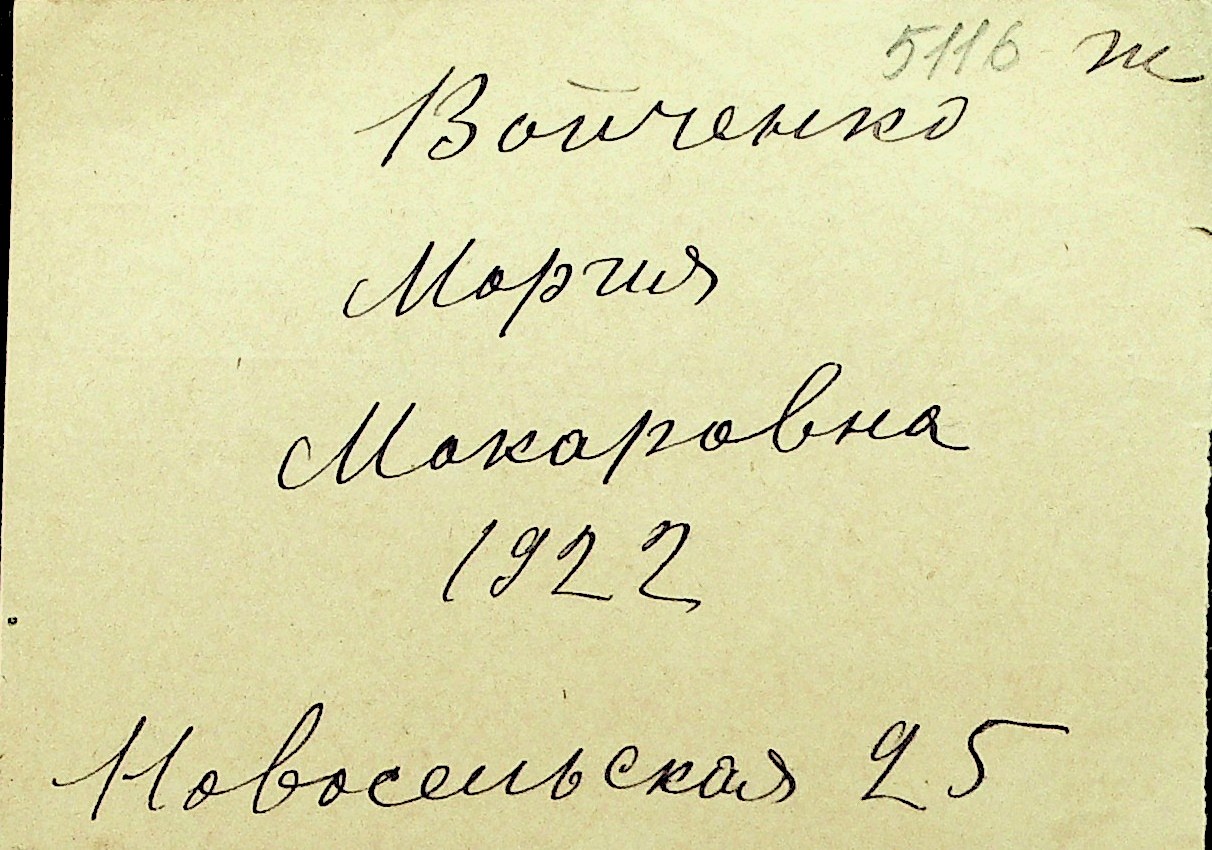 5116 ж
Войченко
Мария
Макаровна
1922
Новосельская 25